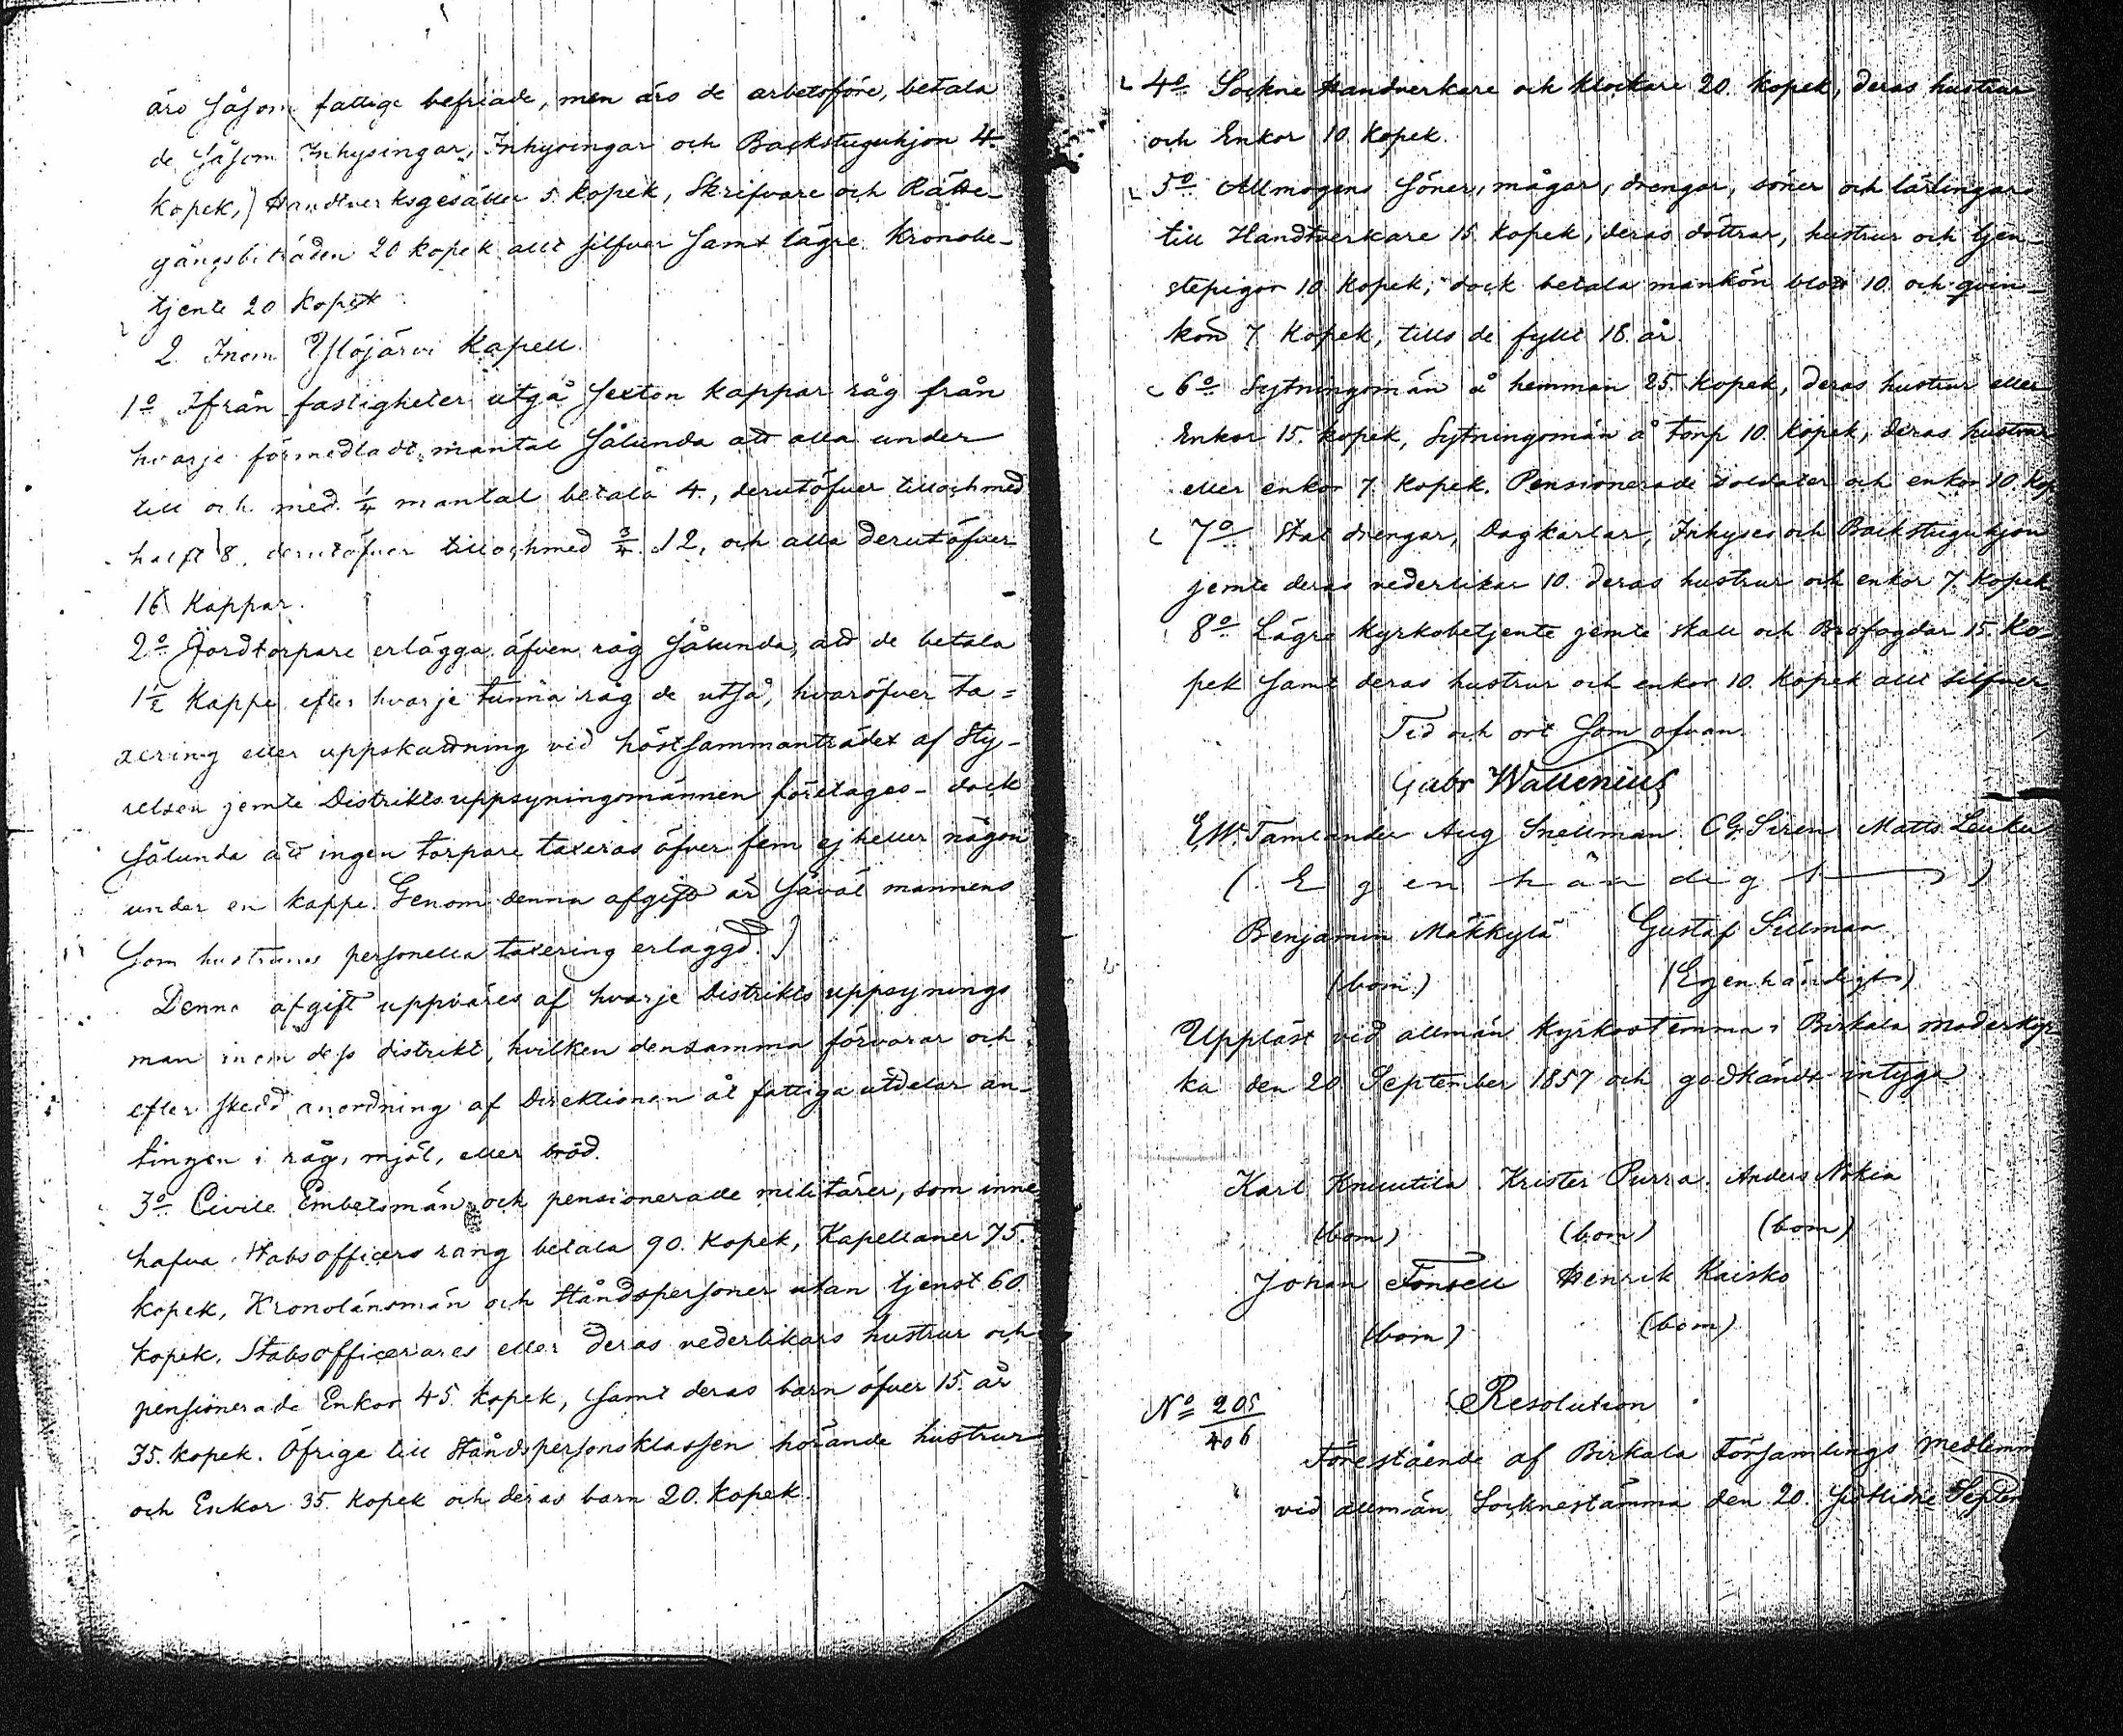 äro såsom fattige befriade, men äro de arbetsföre, betala
de såsom Inhysingar, Inhysingar och Backstuguhjon 4.
kopek,) Handtverksgesäller 5 kopek, Skrifvare och Rätte-
gångsbiträden 20 kopek allt silfver samt lägre Kronobe-
tjente 20 kopek
2 Inom Ylöjärvi Kapell.
1º Ifrån fastigheter utgå sexton kappar råg från
hvarje förmedladt mantal sålunda att alla under
till och med 1/4 mantal betala 4., derutöfver tillochmed
halft 8, derutöfver tillochmed 3/4 12, och alla derutöfver
16 Kappar.
2º Jordtorpare erlägga äfven råg sålunda, att de betala
1 1/2 Kappe efter hvarje tunna råg de utså, hvaröfver ta=
xering eller uppskattning vid höstsammanträdet af Sty-
relsen jemte Distriktsuppsyningsmännen företages - dock
sålunda att ingen torpare taxeras öfver fem ej heller någon
under en kappe. Genom denna afgift är såväl mannens
som hustruns personella taxering erlaggd.)
Denna afgift uppbäres af hvarje Distrikts uppsynings
man inom dess distrikt, hvilken densamma förvarar och
efter skedd anordning af Direktionen åt fattiga utdelar an-
tingen i råg, mjöl, eller bröd.
3º Civile Embetsmän och pensionerade militärer, som inne
hafva Stabsofficers rang betala 90. Kopek, Kapellaner 75.
kopek, Kronolänsmän och Ståndspersoner utan tjenst 60
kopek. Stabsofficerares eller deras vederlikars hustrur och
pensionerade Enkor 45 kopek, samt deras barn öfver 15. år
35. kopek. Öfrige till Ståndspersonsklassen hörande hustrur
och Enkor 35. kopek och deras barn 20. kopek.
4º Sockne Handverkare och klockare 20. kopek, deras hustrur
och Enkor 10 kopek.
5º Allmogens söner, mågar, drengar, söner och lärlingar
till Handtverkare 15 kopek, deras döttrar, hustrur och tjen-
stepigor 10 kopek; dock betala mankön blott 10 och qvin-
kön 7 kopek, tills de fyllt 18 år.
6º Sytningsmän å hemman 25 kopek, deras hustrur eller
Enkor 15. kopek, Sytningsmän å Torp 10 kopek, deras hustrur
eller enkor 7 kopek. Pensionerade Soldater och enkor 10 kop
7º Stat drengar, Dagkarlar, Inhyses och Backstuguhjon
jemte deras vederlikar 10. deras hustrur och enkor 7 kopek
8º Lägre Kyrkobetjente jemte skall och Brofogdar 15. Ko-
pek samt deras hustrur och enkor 10 kopek allt silfver
Tid och ort som ofvan.
Gabr Wallenius
E.W. Tamlander Aug Snellman. CG. Siren Matts Leuku
(Egenhändigt)
Benjamin Mäkkylä Gustaf Sillman
(bom.) (Egenhändigt)
Uppläst vid allmän Kyrkostemma i Birkala moderkyr
ka den 20 September 1857 och godkändt intyga
Karl Knuutila. Krister Purra. Anders Nokia
(bom) (bom) (bom)
Johan Fonsell Henrik Kaisko
(bom) (bom)
Nº 205/406 Resolution
Förestående af Birkala Församlings medlemm
vid allmän Socknestämma den 20. sistlidne Septem